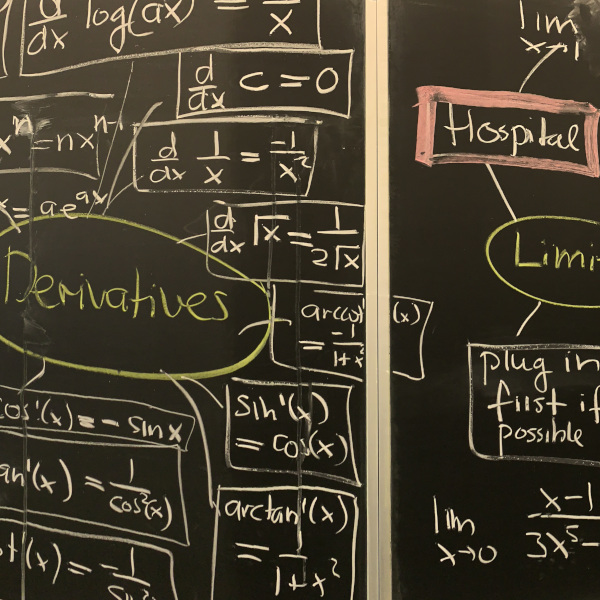 d/dx log(ax) = /x
d/dx c = 0
x^n = nx^n-1
d/dx 1/x = -1/x²
= ae^ax
d/dx √x = 1/2√x
Derivatives
arccot' (x)
= -1/1+x²
cos'(x) = - sin x
sin'(x)
= cos(x)
an'(x) = 1/cos²(x)
arctan'(x)
= 1/1+x²
ot'(x) = -1/sin²
lim
x→1
Hospital
Limi
plug in
first if
possible
lim x→0 x-1/3x⁵-